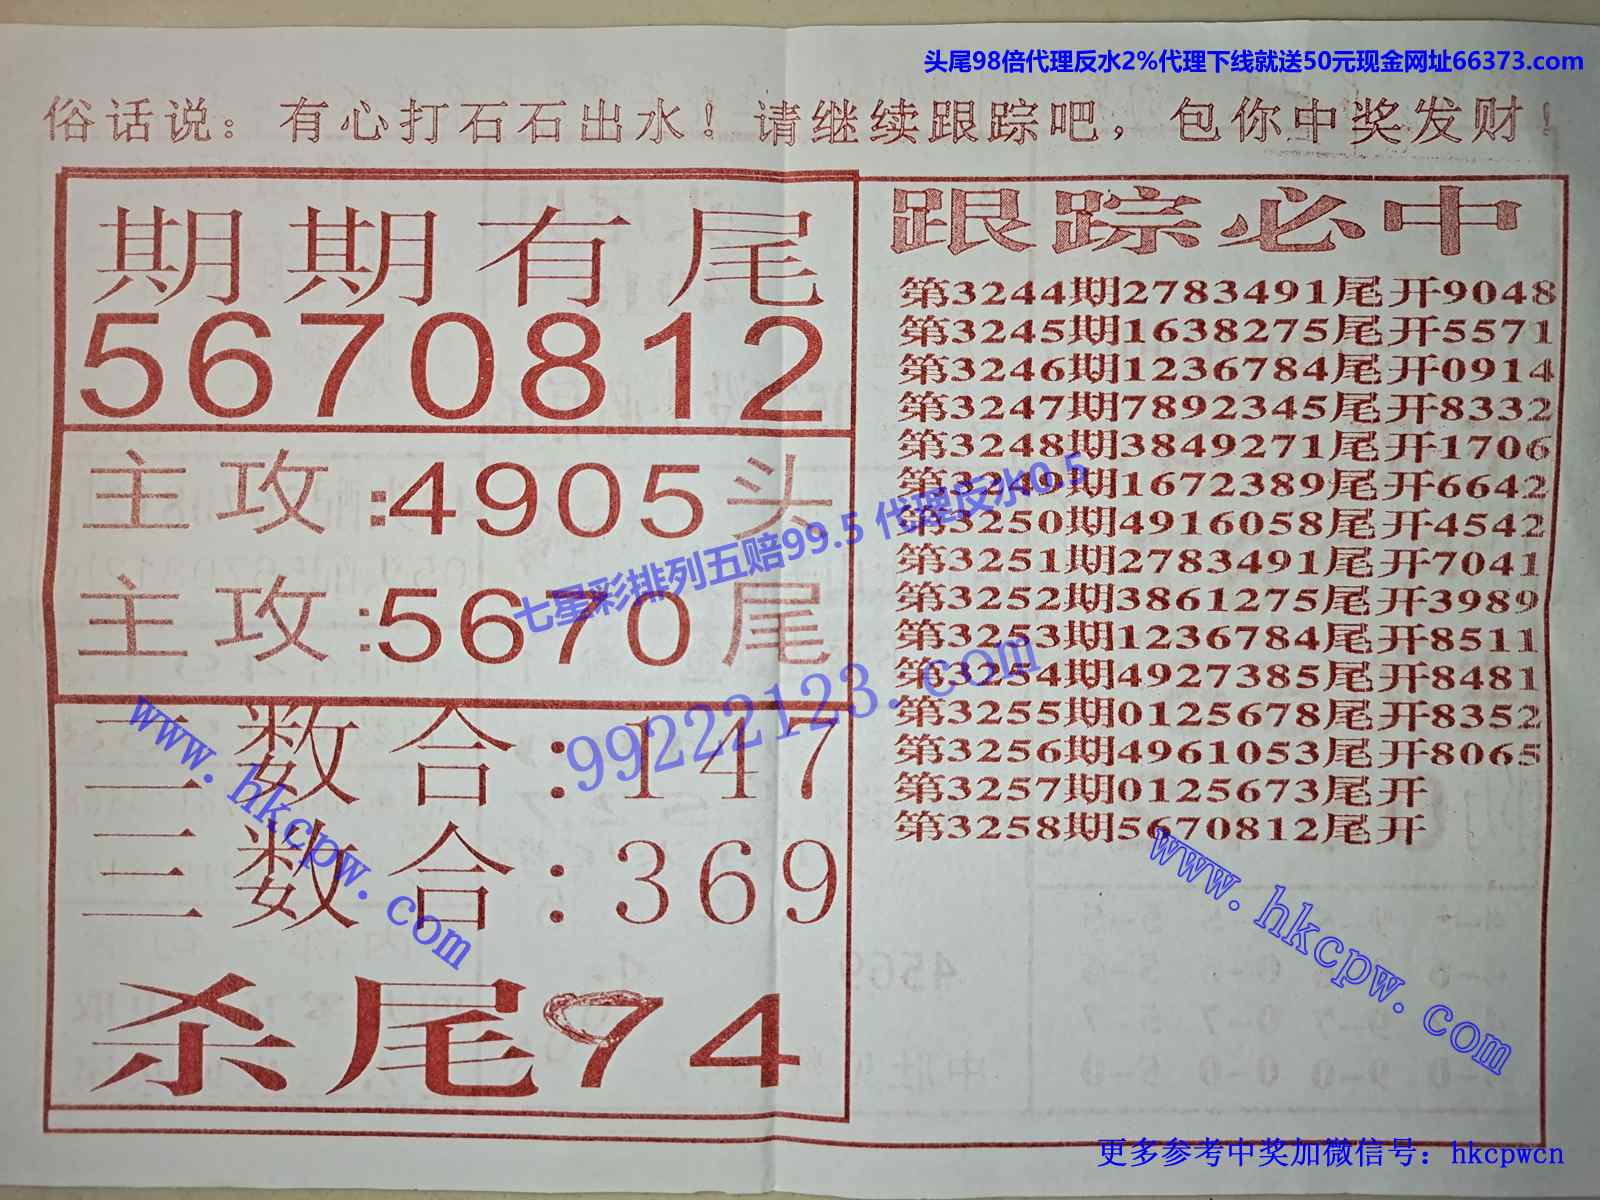 头尾98倍代理反水2%代理下线就送50元现金网址66373.com
俗话说：有心打石石出水！请继续跟踪吧，包你中奖发财！
期期有尾
5670812
主攻:4905头
主攻:5670尾
三数合:147
三数合:369
杀尾74
跟踪必中
第3244期2783491尾开9048
第3245期1638275尾开5571
第3246期1236784尾开0914
第3247期7892345尾开8332
第3248期3849271尾开1706
第3249期1672389尾开6642
第3250期4916058尾开4542
第3251期2783491尾开7041
第3252期3861275尾开3989
第3253期1236784尾开8511
第3254期4927385尾开8481
第3255期0125678尾开8352
第3256期4961053尾开8065
第3257期0125673尾开
第3258期5670812尾开
七星彩排列五赔99.5 代理反水0.5
99222123.com
www.hkcpw.com
www.hkcpw.com
更多参考中奖加微信号：hkcpwcn